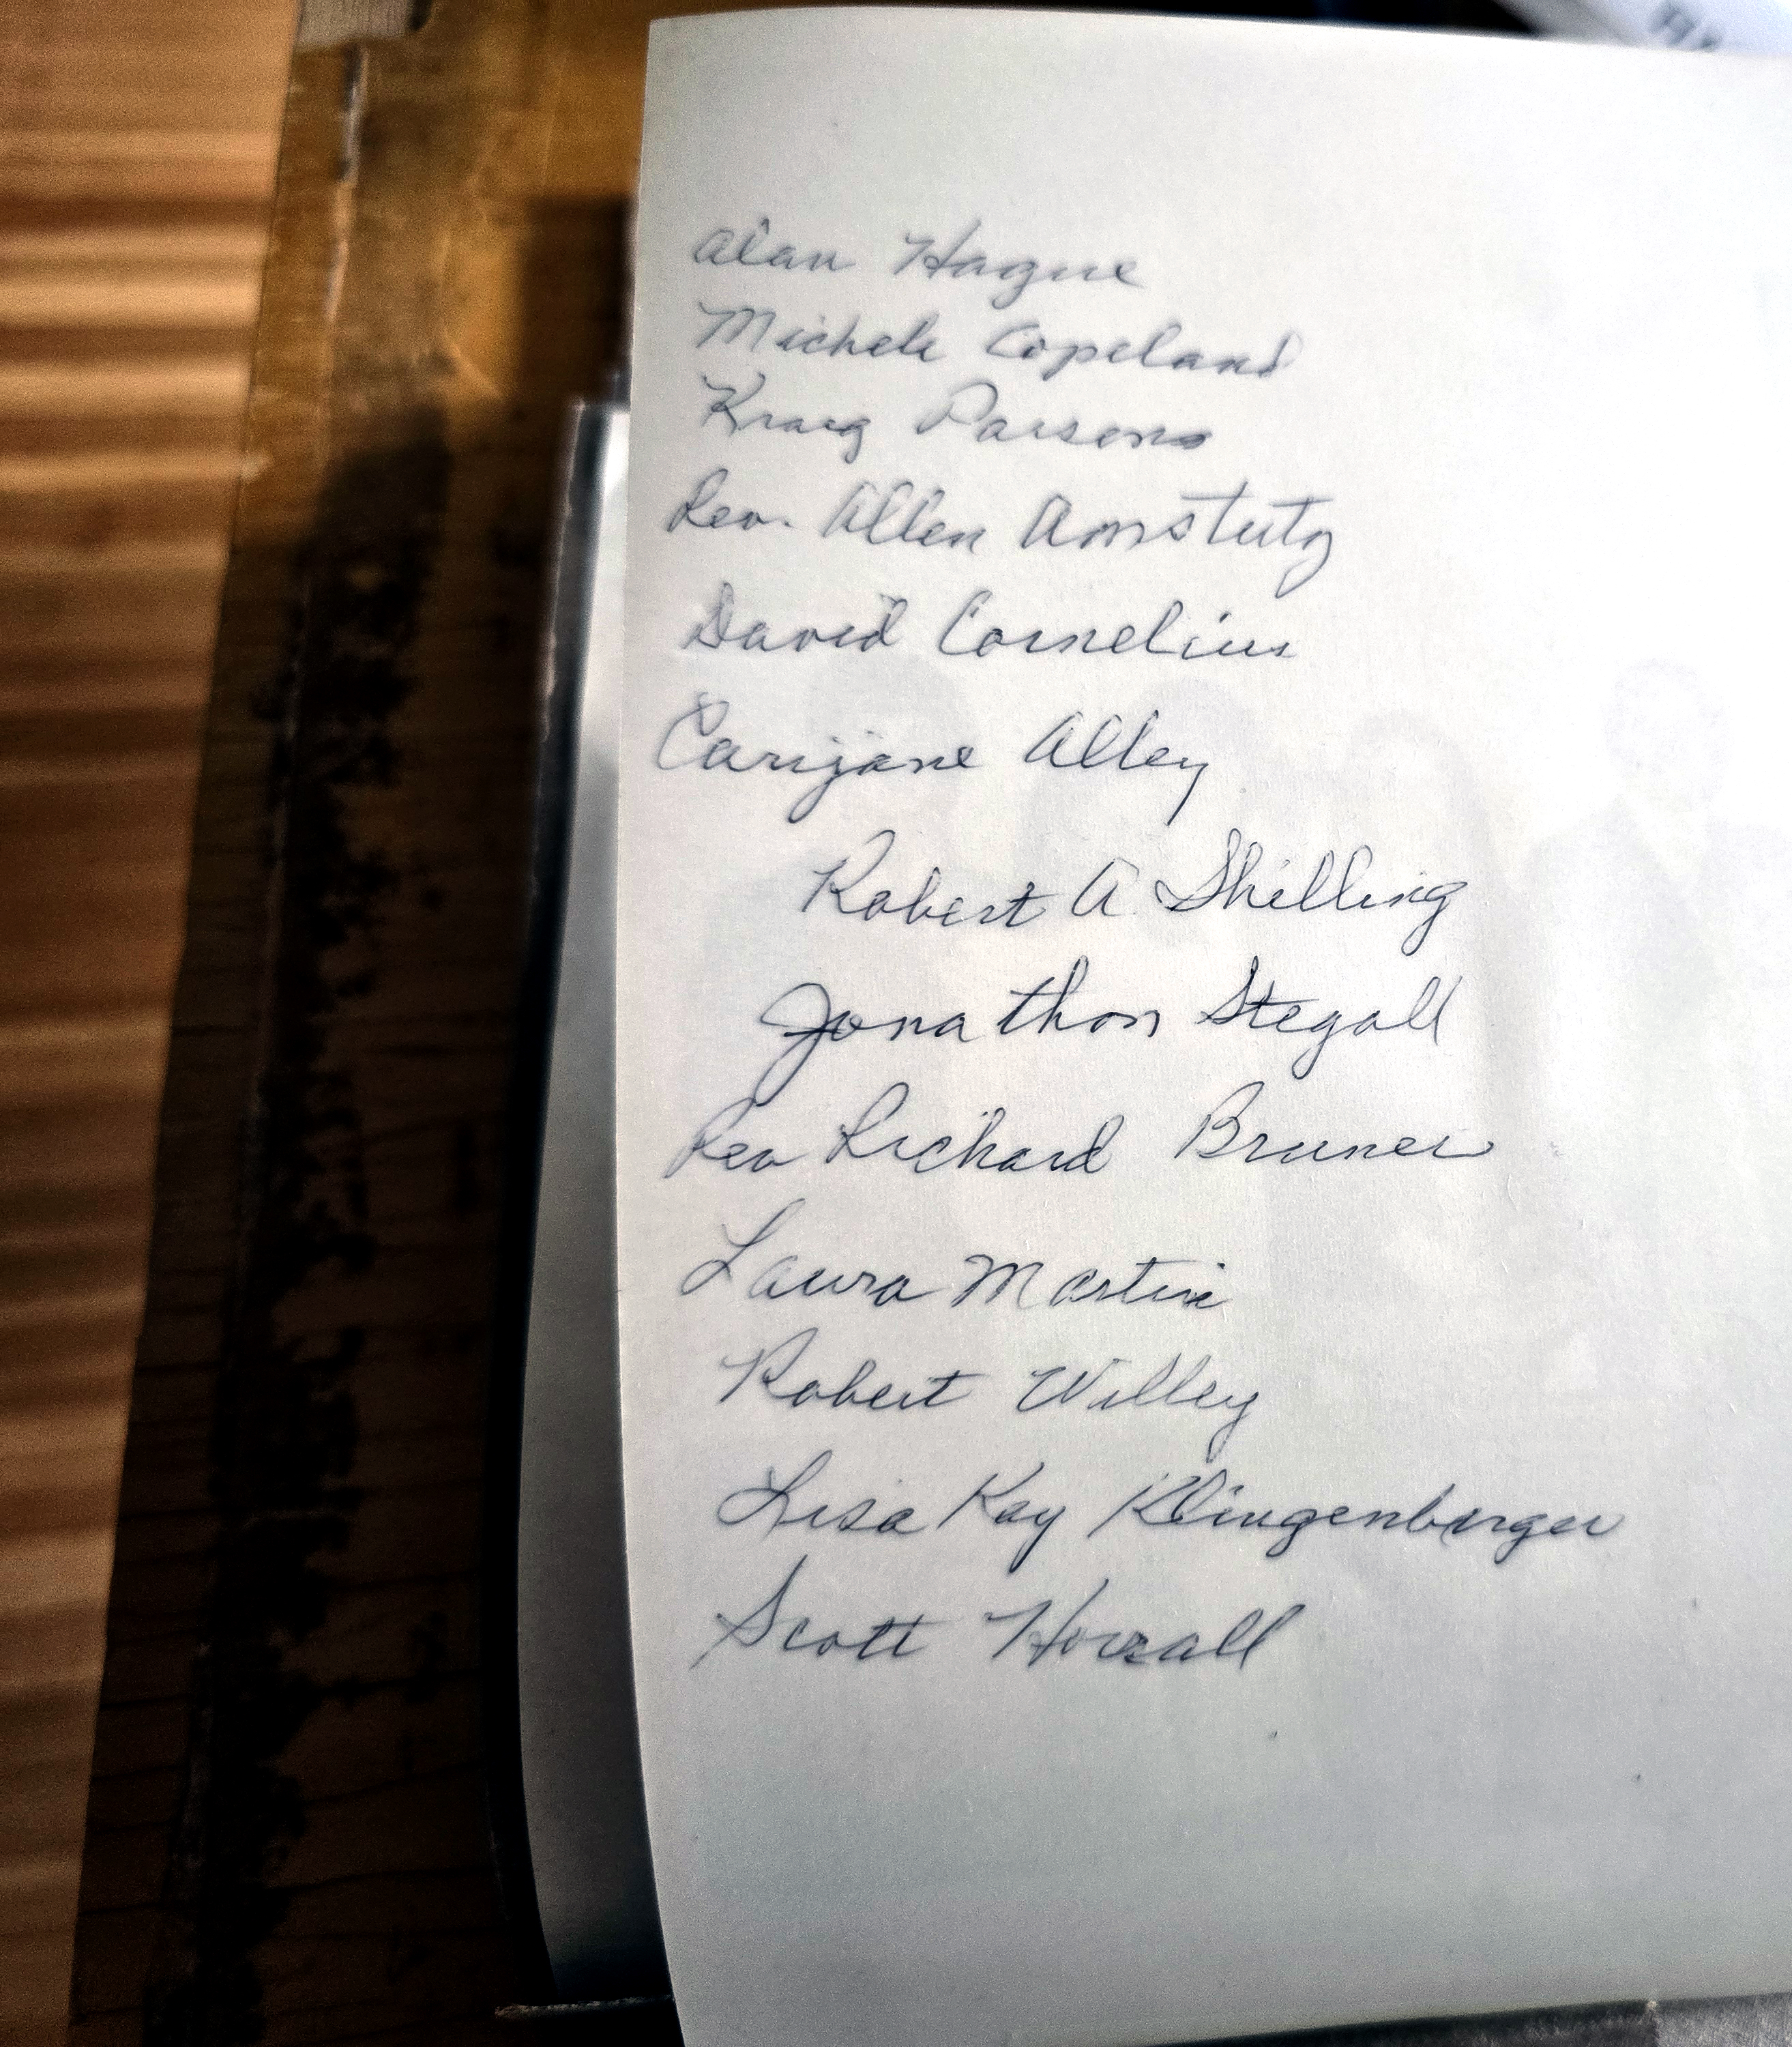 Alan Hague
Michele Copeland
Kraig Parsons
Rev. Allen Amstutz
David Cornelius
Carijane Alley
Robert A. Shilling
Jonathon Stegall
Rev Richard Bruner
Laura Martin
Robert Willey
Lisa Kay Klingenberger
Scott Horrall